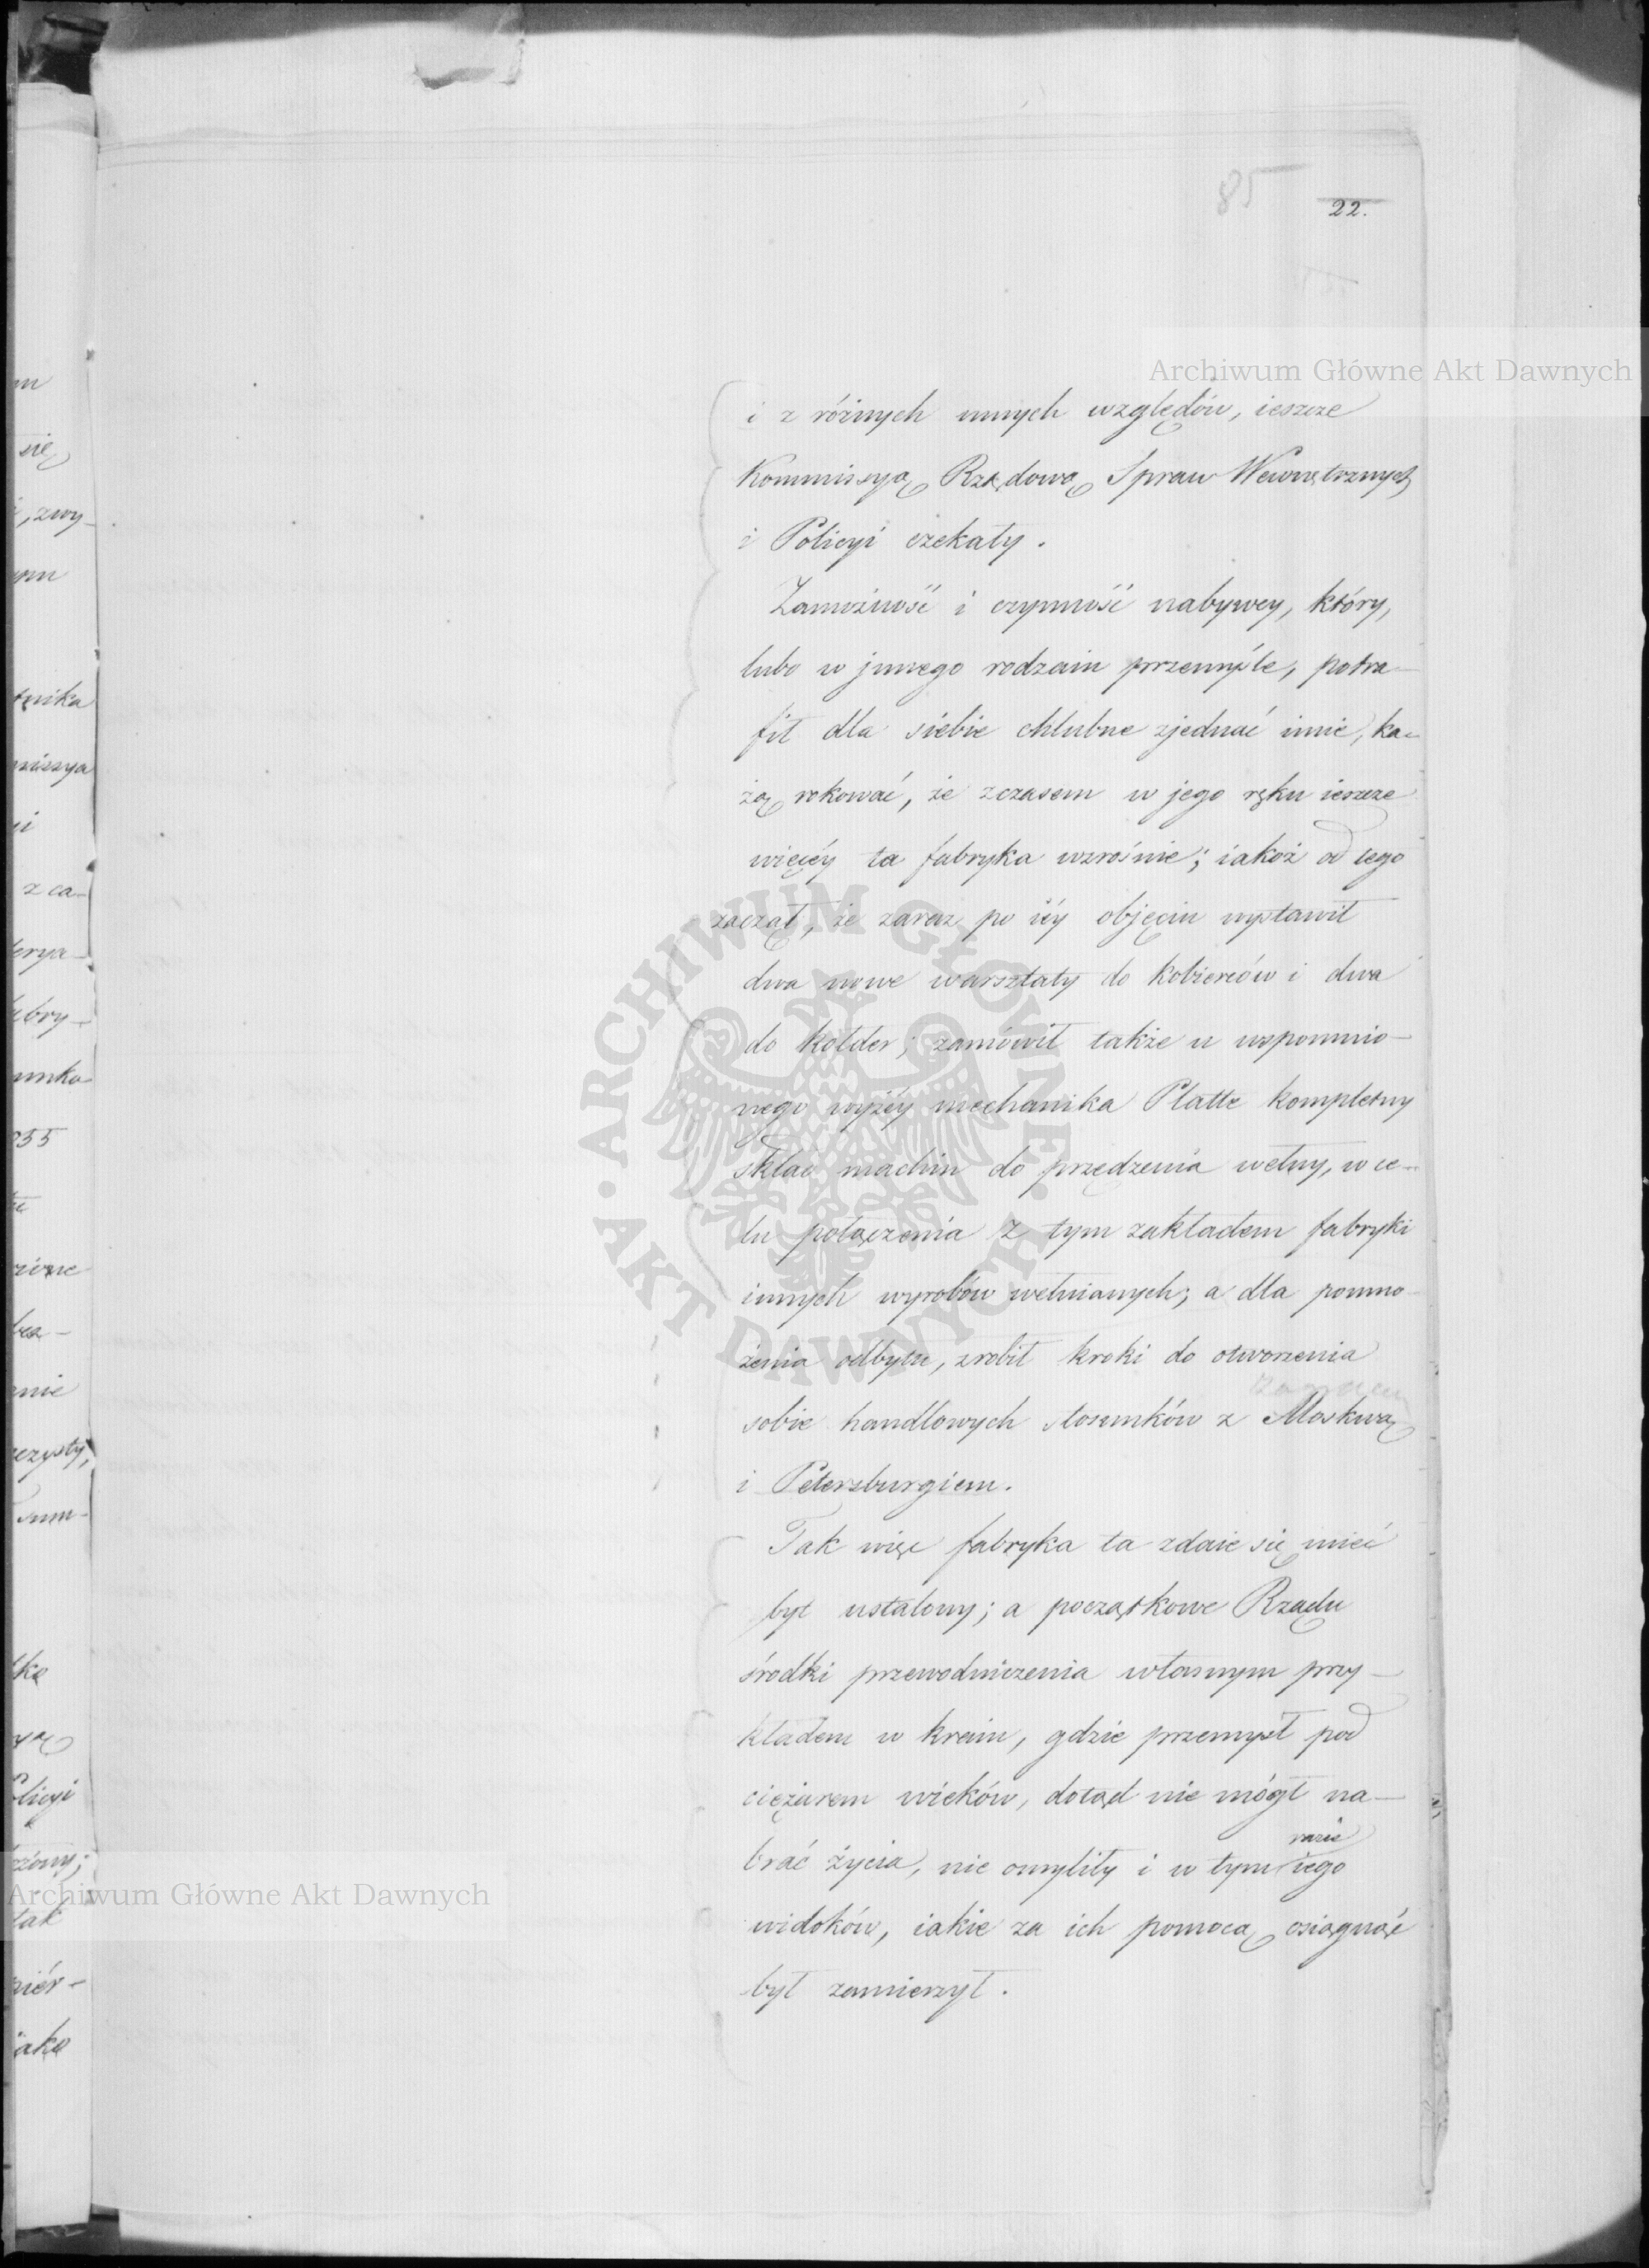 85
22.
Archiwum Główne Akt Dawnych
i z różnych innych względów, ieszcze
Kommissyą Rządową Spraw Wewnętrznych
i Policyi czekały.
Zamożność i czynność nabywcy, który,
lubo w innego rodzaiu przemyśle, potra-
fił dla siebie chlubne zjednać imie, ka-
żą rokować, że zczasem w jego ręku ieszcze
więcéy ta fabryka wzrośnie; iakoż od tego
zaczął, że zaraz po iéy objęciu wystawił
dwa nowe warsztaty do kobierców i dwa
do kołder; zamówił także u wspomnio-
nego wyżéy mechanika Platte kompletny
skład machin do przędzenia wełny, w ce-
lu połączenia z tym zakładem fabryki
innych wyrobów wełnianych; a dla pomno-
żenia odbytu, zrobił kroki do otworzenia
sobie handlowych stosunków z Moskwą
i Petersburgiem.
Tak więc fabryka ta zdaie się mieć
byt ustalony; a początkowe Rządu
środki przewodniczenia własnym przy-
kładem w kraiu, gdzie przemysł pod
ciężarem wieków, dotąd nie mógł na-
brać życia, nie omyliły i w tym razie iego
widoków, iakie za ich pomocą osiągnąć
był zamierzył.
ARCHIWUM GŁÓWNE · AKT DAWNYCH ·
Archiwum Główne Akt Dawnych
m
się
, zwy-
ym
tnika
missya
i
z ca-
erya-
abry-
unku
255
bez-
anie
czysty,
sum-
tkę
olicyi
tak
piér-
iako